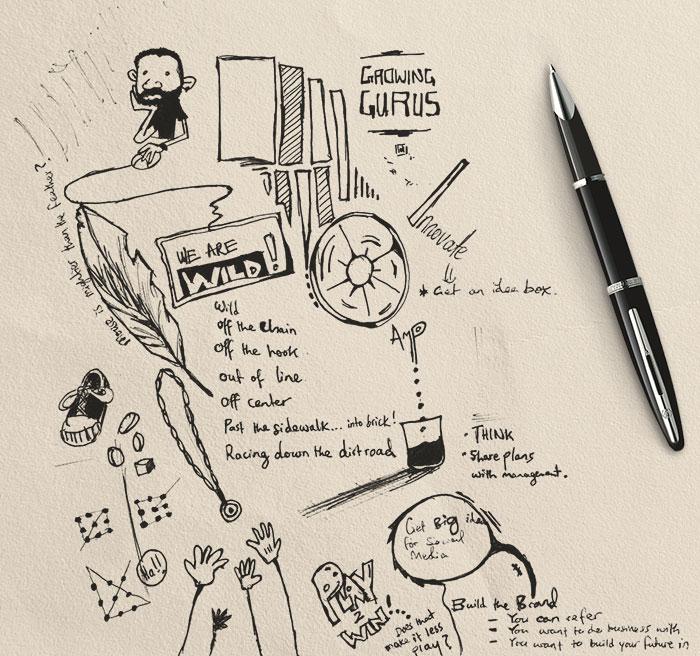 GROWING
GURUS
Mouse is mightier than the feather?
WE ARE
WILD!
Innovate
* Get an idea box.
Wild
Off the Chain
Off the hook
out of line
Off center
Past the sidewalk... into brick!
Racing down the dirt road
AMP
• THINK
• Share plans
with management.
Ha!!
Get BIG idea
for Social
Media
PLAY
2
WIN!..
Does that
make it less
play?
Build the Brand
- You can refer
- You want to do business with
- You want to build your future in